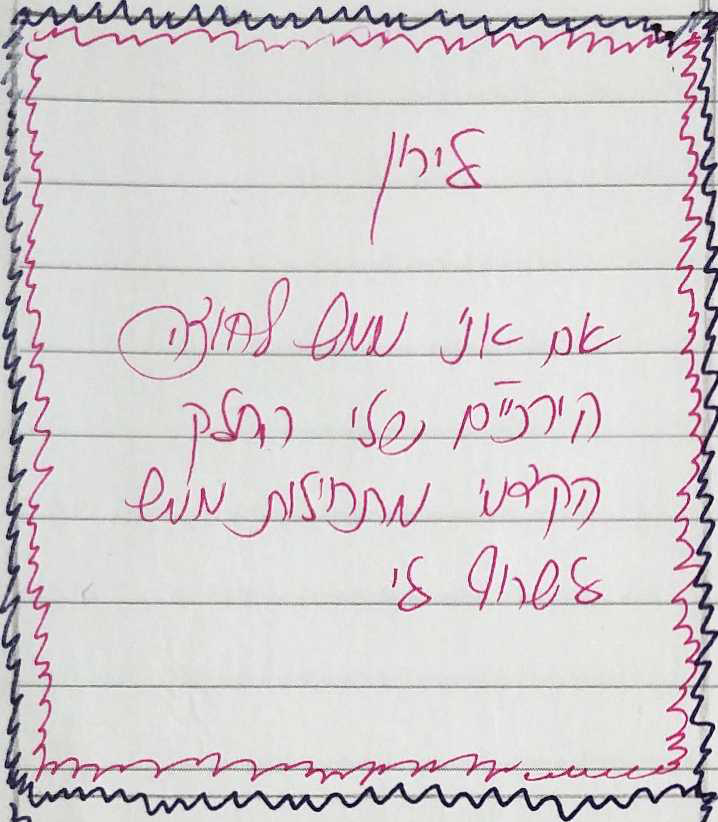 לירון
אם אני ממש לחוצה
הירכיים שלי החלק
הקדמי מתחילות ממש
לשרוף לי